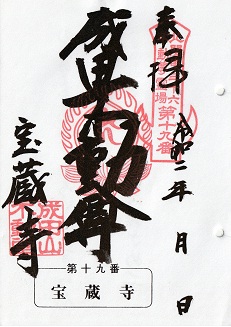 奉拝
第十九番
令和二年 月 日
成田不動尊
宝蔵寺
第十九番
宝蔵寺